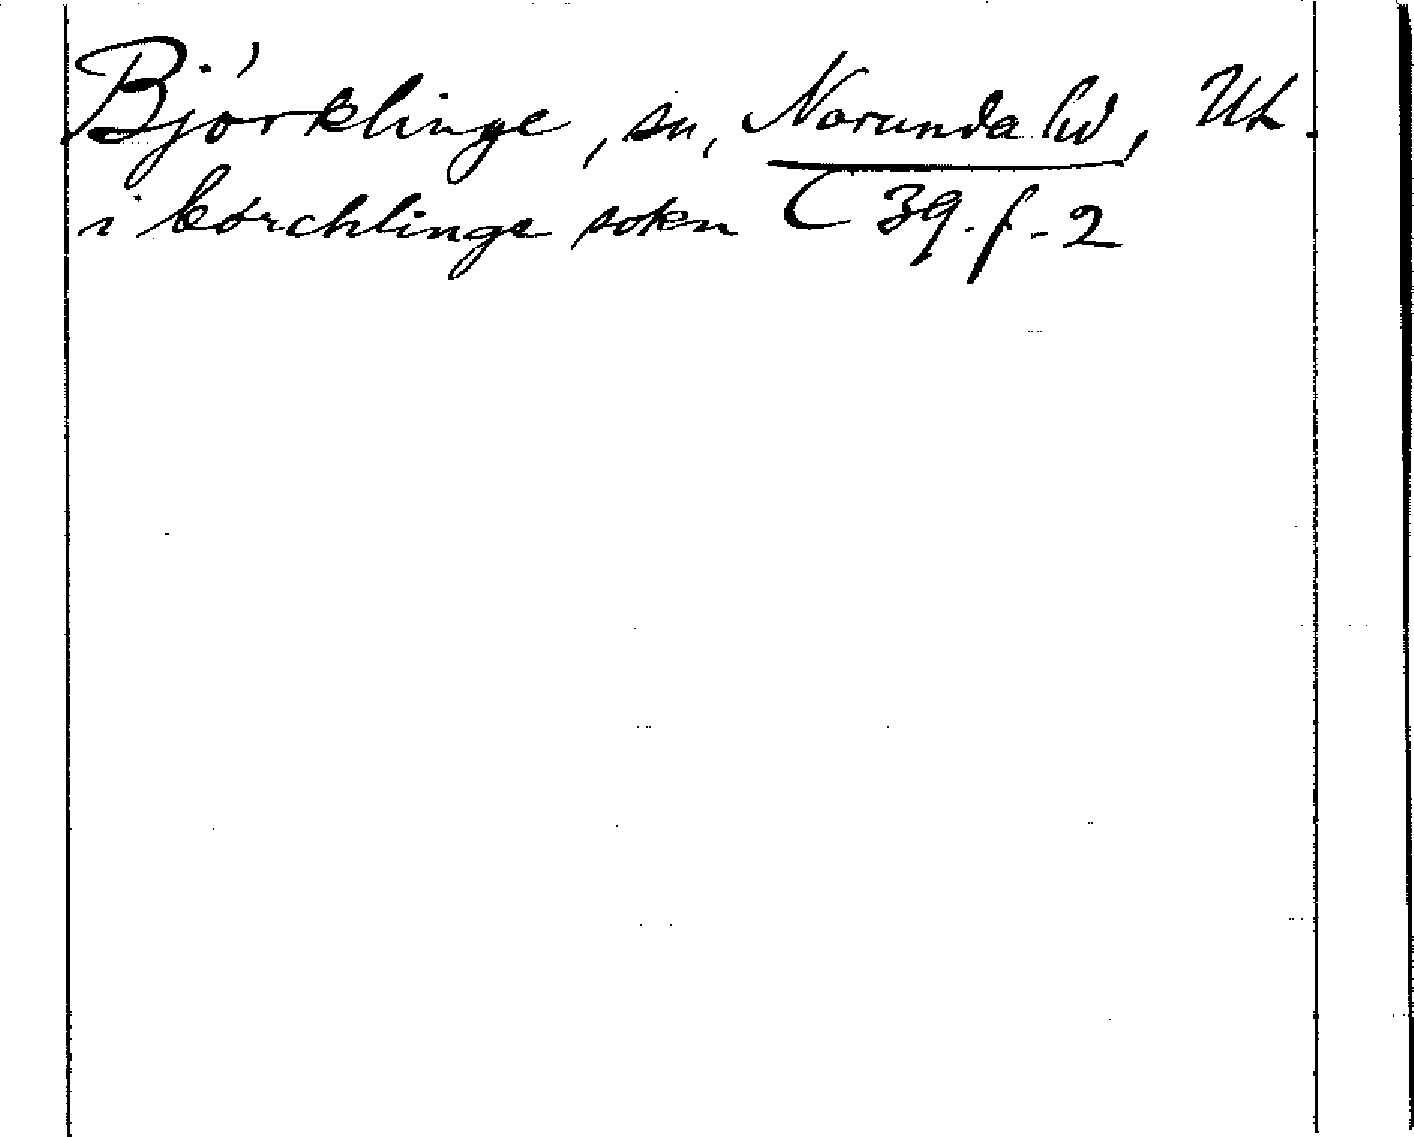 Björklinge, sn, Norunda hd, UL.
i børchlinge sokn C 39. f. 2